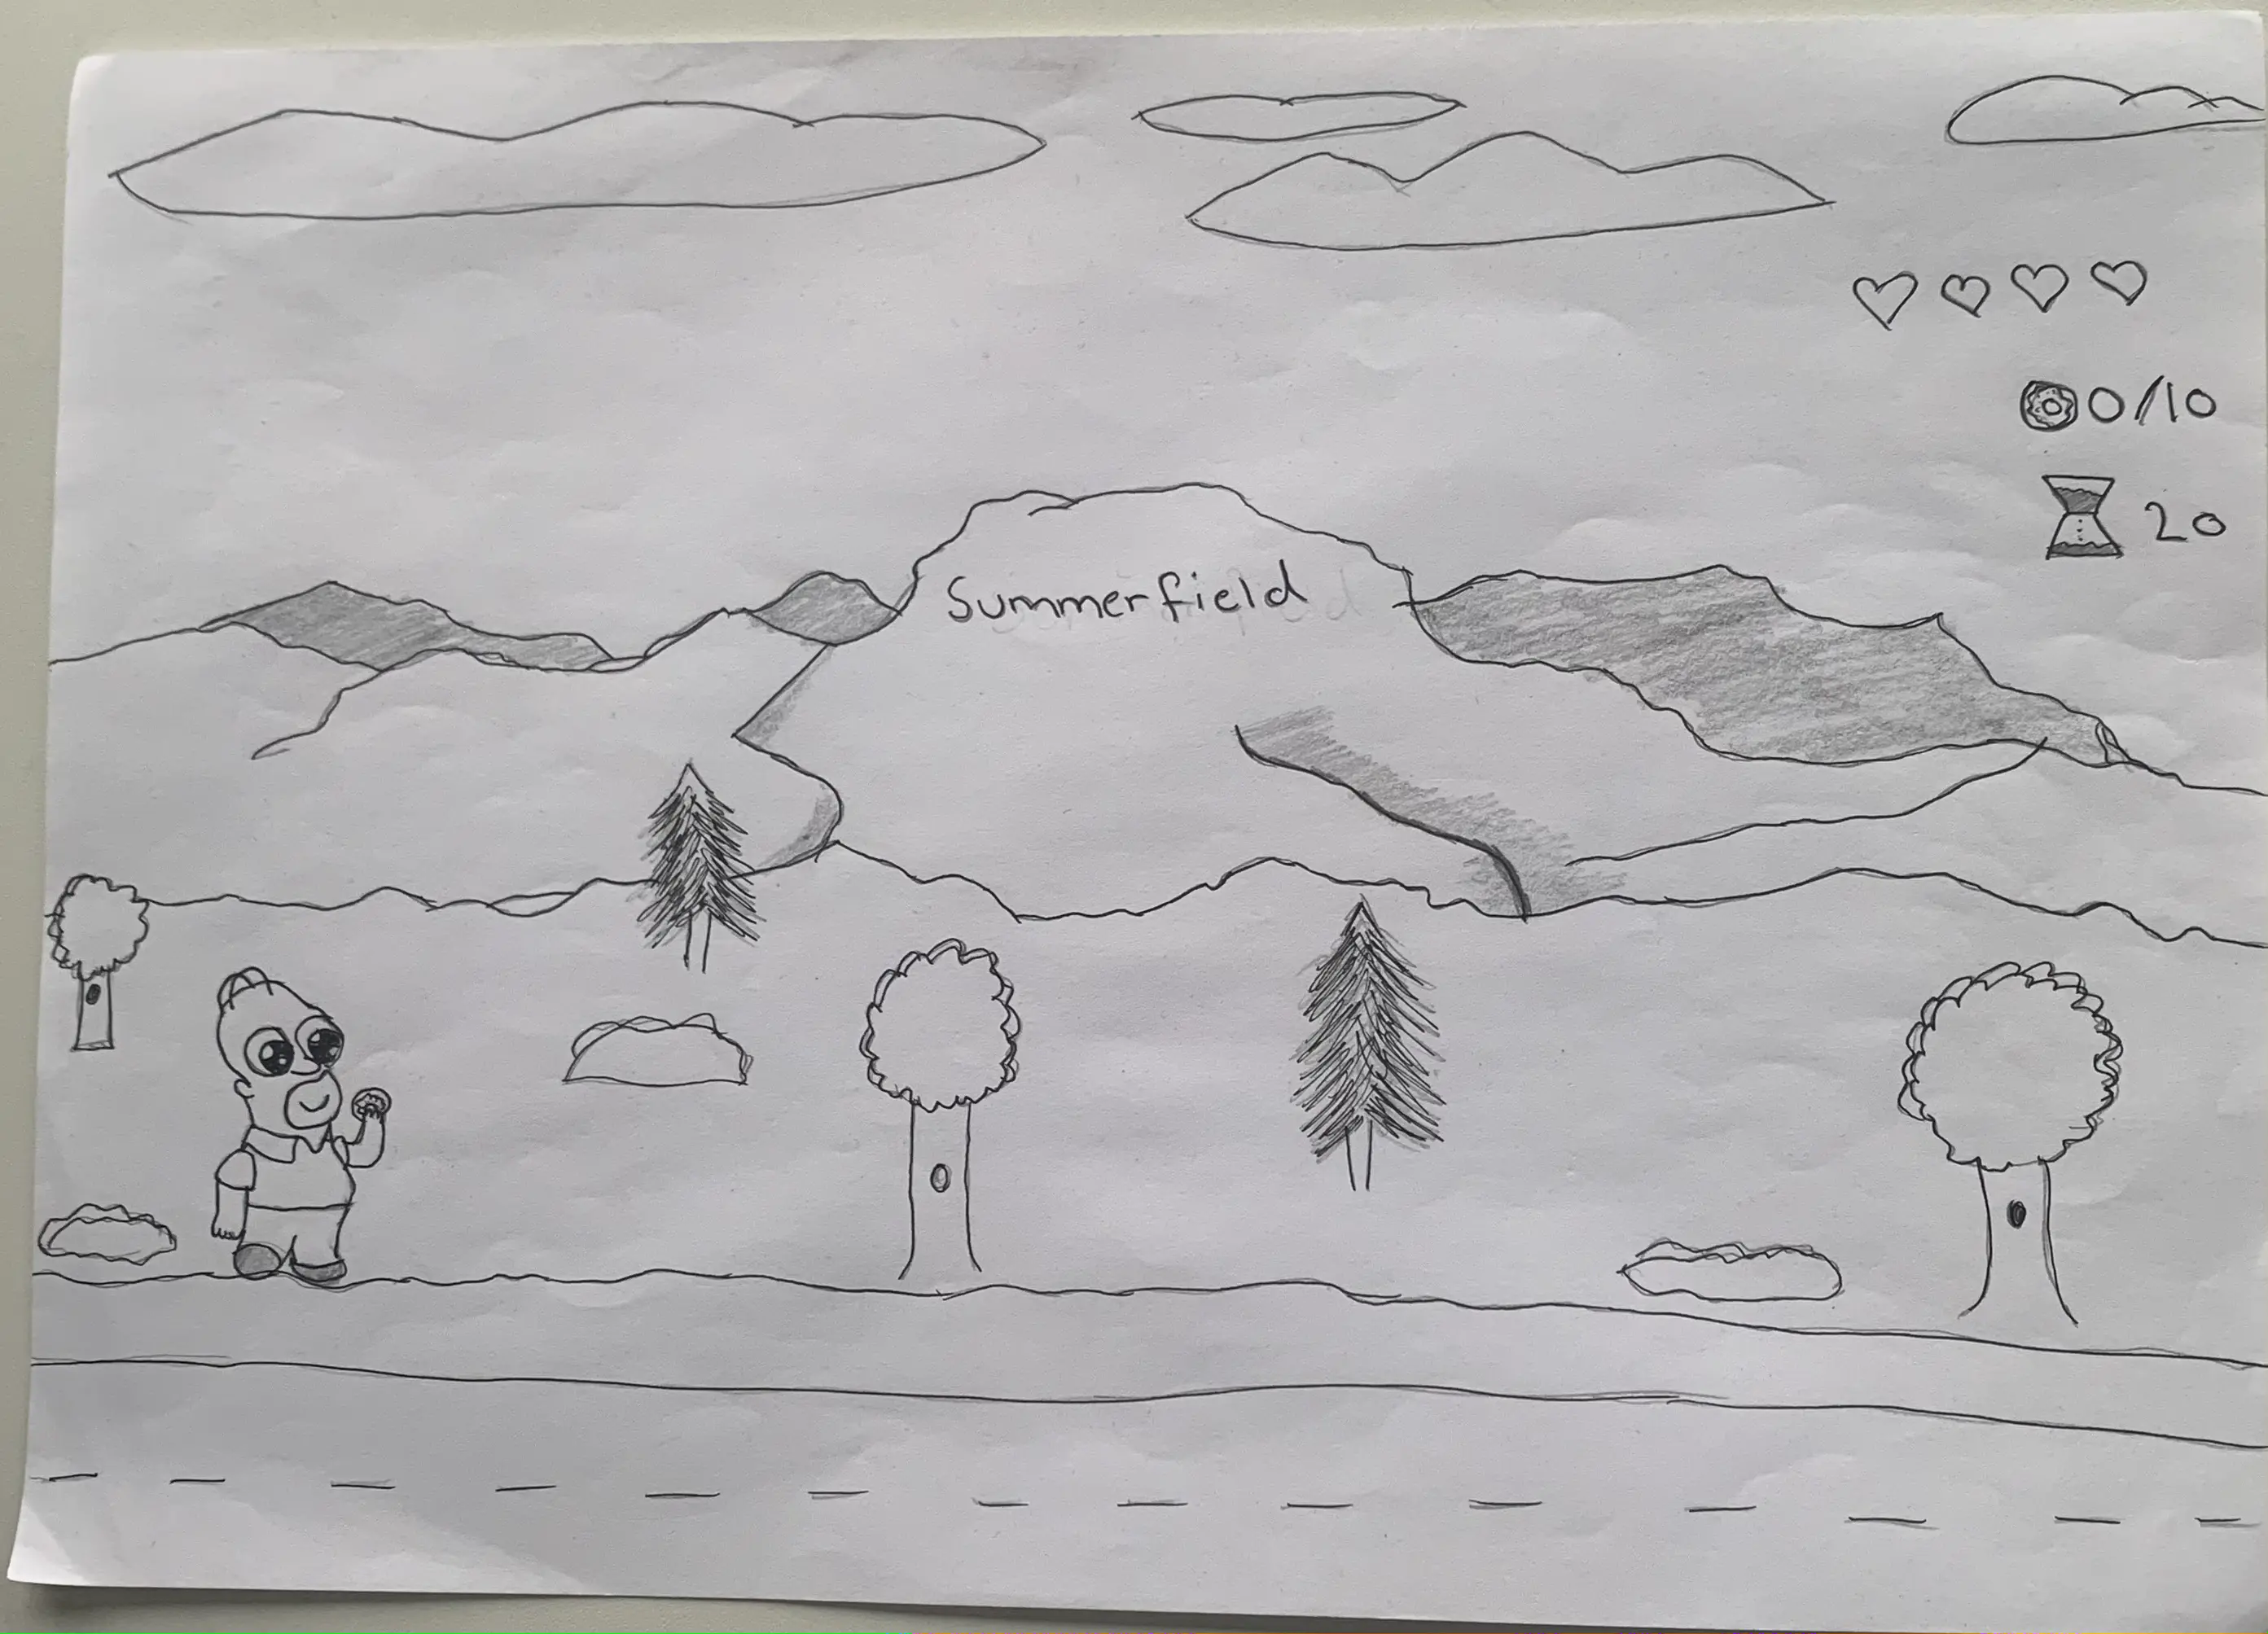 0/10
20
Summerfield